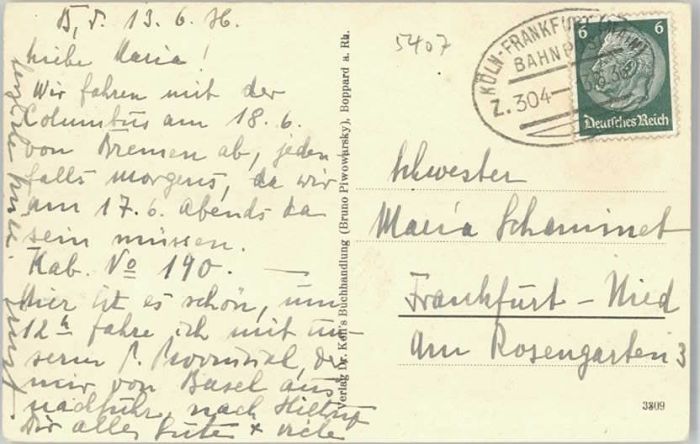 B, d. 13.6.36.
Liebe Maria!
Wir fahren mit der
Columbus am 18.6.
von Bremen ab, jeden
falls morgens, da wir
am 17.6. abends da
sein müssen.
Kab. No 190. —
Hier ist es schön, um
12h fahre ich mit un-
serm P. Provinzial, der
mir von Basel aus
nachfuhr, nach Hiltrup
Dir alles Gute + viele
Verlag Dr. Keil's Buchhandlung (Bruno Piwowarsky), Boppard a. Rh.
5407
KÖLN-FRANKFURT (MAIN)
BAHNPOST
Z. 304
6 6
Deutsches Reich
Schwester
Maria Schaminet
Frankfurt - Nied
Am Rosengarten 3
3809